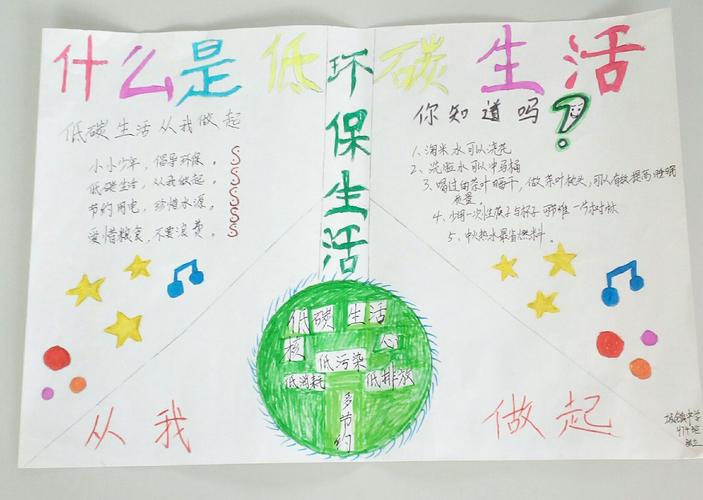 什么是低碳生活
环保生活
低碳生活从我做起
小小少年，倡导环保。
低碳生活，从我做起。
节约用电，珍惜水源。
爱惜粮食，不要浪费。
你知道吗？
1、淘米水可以浇花
2、洗脸水可以冲马桶
3、喝过的茶叶晒干，做茶叶枕头，可以有效提高睡眠
质量。
4、少用一次性筷子与杯子
5、中火热水最省燃料。
低碳生活
核心
低污染
低消耗 低排放
多节约
从我
做起
中学